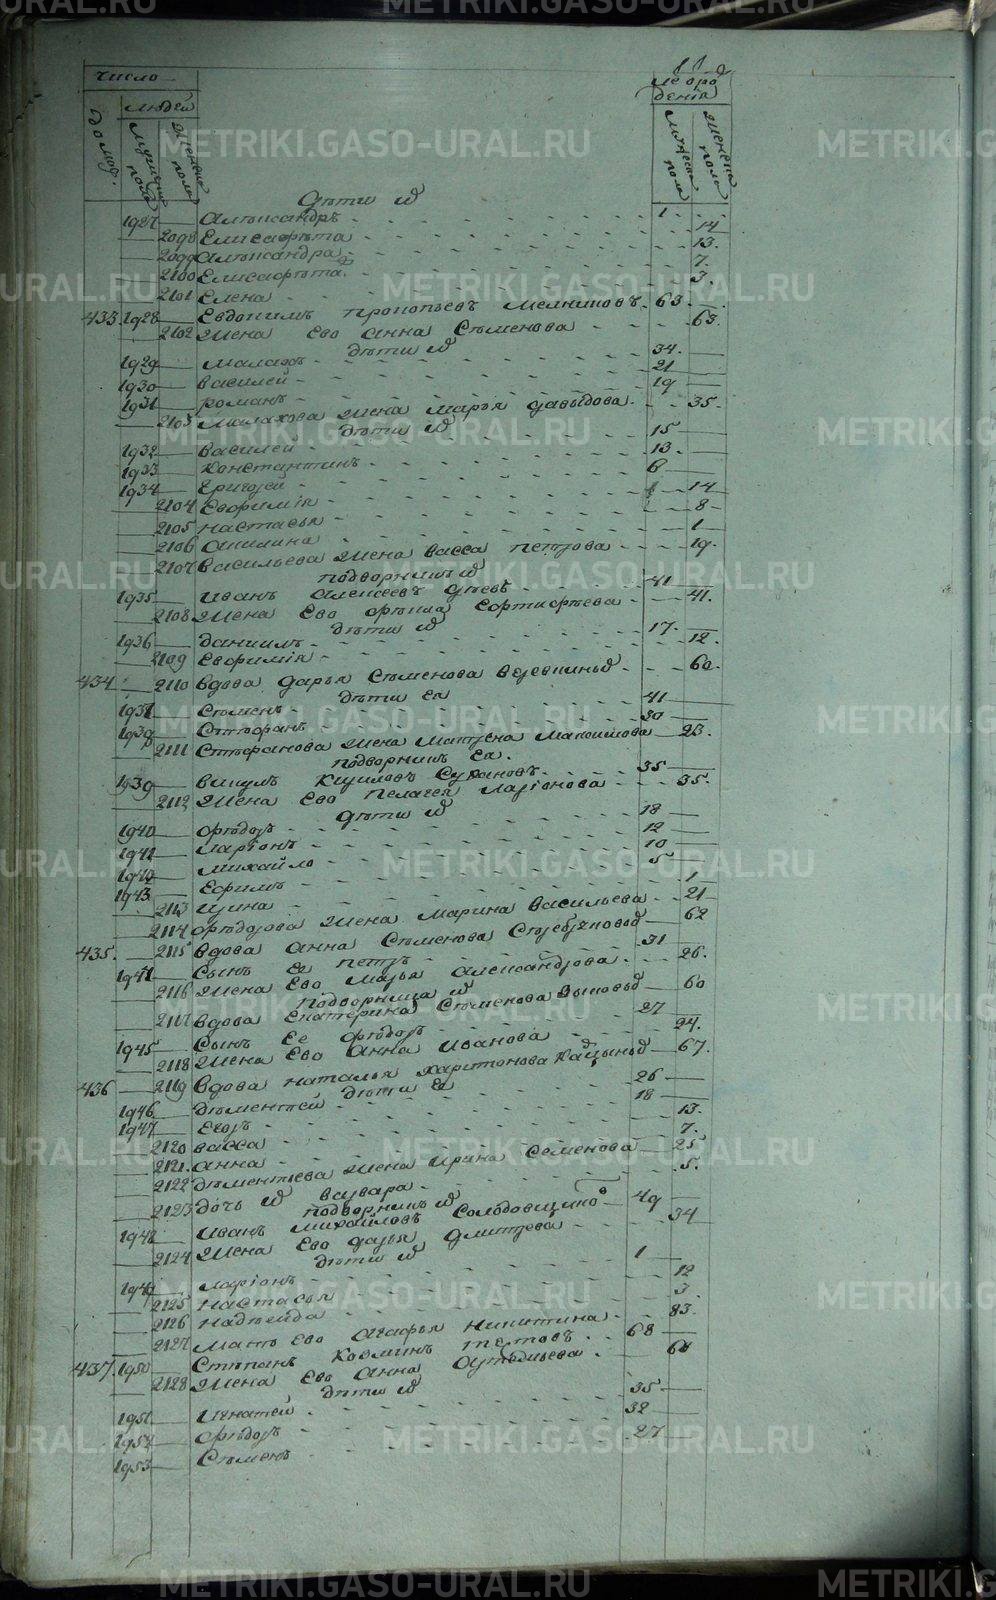 число
людей
домов.
мужеска пола
женска пола
лѣ
рождения
мужеска пола
женска пола
дѣти ихъ
1927 Александръ 1
2098 Елисафѣта 14
2099 Александра 13.
2100 Елисафѣта 7.
2101 Елена 3.
433 1928 Евдокимъ Прокопьевъ Мелниковъ 63.
2102 жена Ево Анна Сѣменова 63.
дѣти ихъ
1929 Малахъ 34.
1930 Василей 21
1931 Романъ 19
2103 Малахова жена Марья Давыдова 35.
дѣти ихъ
1932 Василей 15
1933 Константинъ 13.
1934 Григорей 6
2104 Евфимія 14
2105 Настасья 8
2106 Акилина 1
2107 Васильева жена Васса Петрова 19.
подворники ихъ
1935 Иванъ Алексеевъ 41
2108 жена Ево 41.
дѣти ихъ
1936 Даниилъ 17.
2109 Евфимія 12.
434 2110 вдова Дарья Сѣменова 60.
дѣти ея
1937 Сѣменъ 41
1938 Стѣфанъ 30
2111 Стѣфанова жена Матрена Максимова 23.
подворникъ Ея.
1939 Викулъ Кириловъ Сухановъ 35
2112 жена Ево Пелагея Ларионова 35.
дѣти ихъ
1940 Фѣдоръ 18
1941 Ларіонъ 12
1942 Михайло 10
1943 Ефимъ 5
2113 Ирина 1
2114 Фѣдорова жена Марина Васильева 21
435. 2115 вдова Анна Сѣменова 62
1944 сынъ Ее Петръ 31
2116 жена Ево Марья Александрова 26.
подворница ихъ
2117 вдова Екатерина Сѣменова 60
1945 сынъ Ее Фѣдоръ 27
2118 жена Ево Анна Иванова 24.
436 2119 вдова Наталья Харитонова 67.
дѣти Ее
1946 Дѣментей 26
1947 Егоръ 18
2120 Васса 13.
2121 Анна 7.
2122 Дѣментьева жена Ирина Семенова 25
2123 дочь ихъ Варвара 5.
подворники ихъ
1948 Иванъ Михайловъ Солодовщиковъ 49
2124 жена Ево Дарья Дмитрева 34
дѣти ихъ
1949 Ларіонъ 1
2125 Настасья 12
2126 Надѣжда 3
2127 мать Ево Агафья Никитина 83.
437. 1950 Стѣпанъ Козминъ 68
2128 жена Ево Анна
дѣти ихъ
1951 Игнатей 35
1952 Фѣдоръ 32
1953 Сѣменъ 27
METRIKI.GASO-URAL.RU